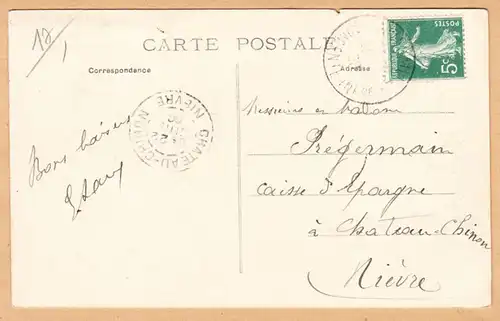 12
CARTE POSTALE
Correspondance
Adresse
REPUBLIQUE FRANCAISE
POSTES
5c
CHATEAU-CHINON
NIEVRE
Bons baisers
Messieurs
Prégermain
caisse d'Epargne
à Chateau-Chinon
Nièvre